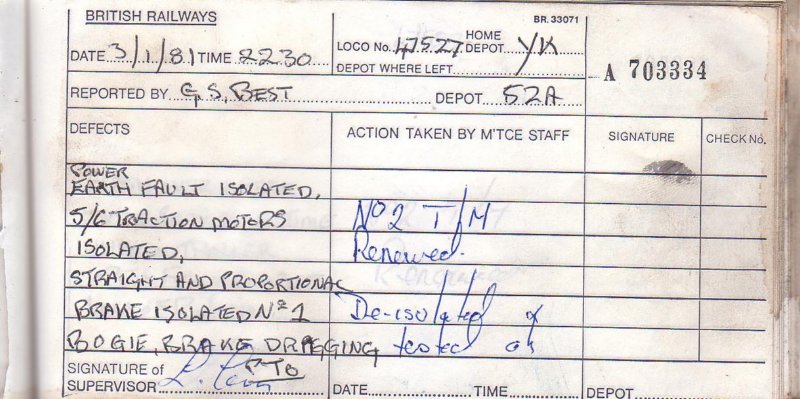 BRITISH RAILWAYS
BR. 33071
DATE 3/1/81 TIME 2230
LOCO No. 47527 HOME DEPOT YK
DEPOT WHERE LEFT
A 703334
REPORTED BY G. S. BEST DEPOT 52A
DEFECTS
ACTION TAKEN BY M'TCE STAFF
SIGNATURE
CHECK No.
POWER
EARTH FAULT ISOLATED,
5/6 TRACTION MOTORS No 2 T/M
ISOLATED, Renewed.
STRAIGHT AND PROPORTIONAL
BRAKE ISOLATED No 1 De-isolated
BOGIE, BRAKE DRAGGING tested ok
PTO
SIGNATURE of
SUPERVISOR
DATE TIME DEPOT